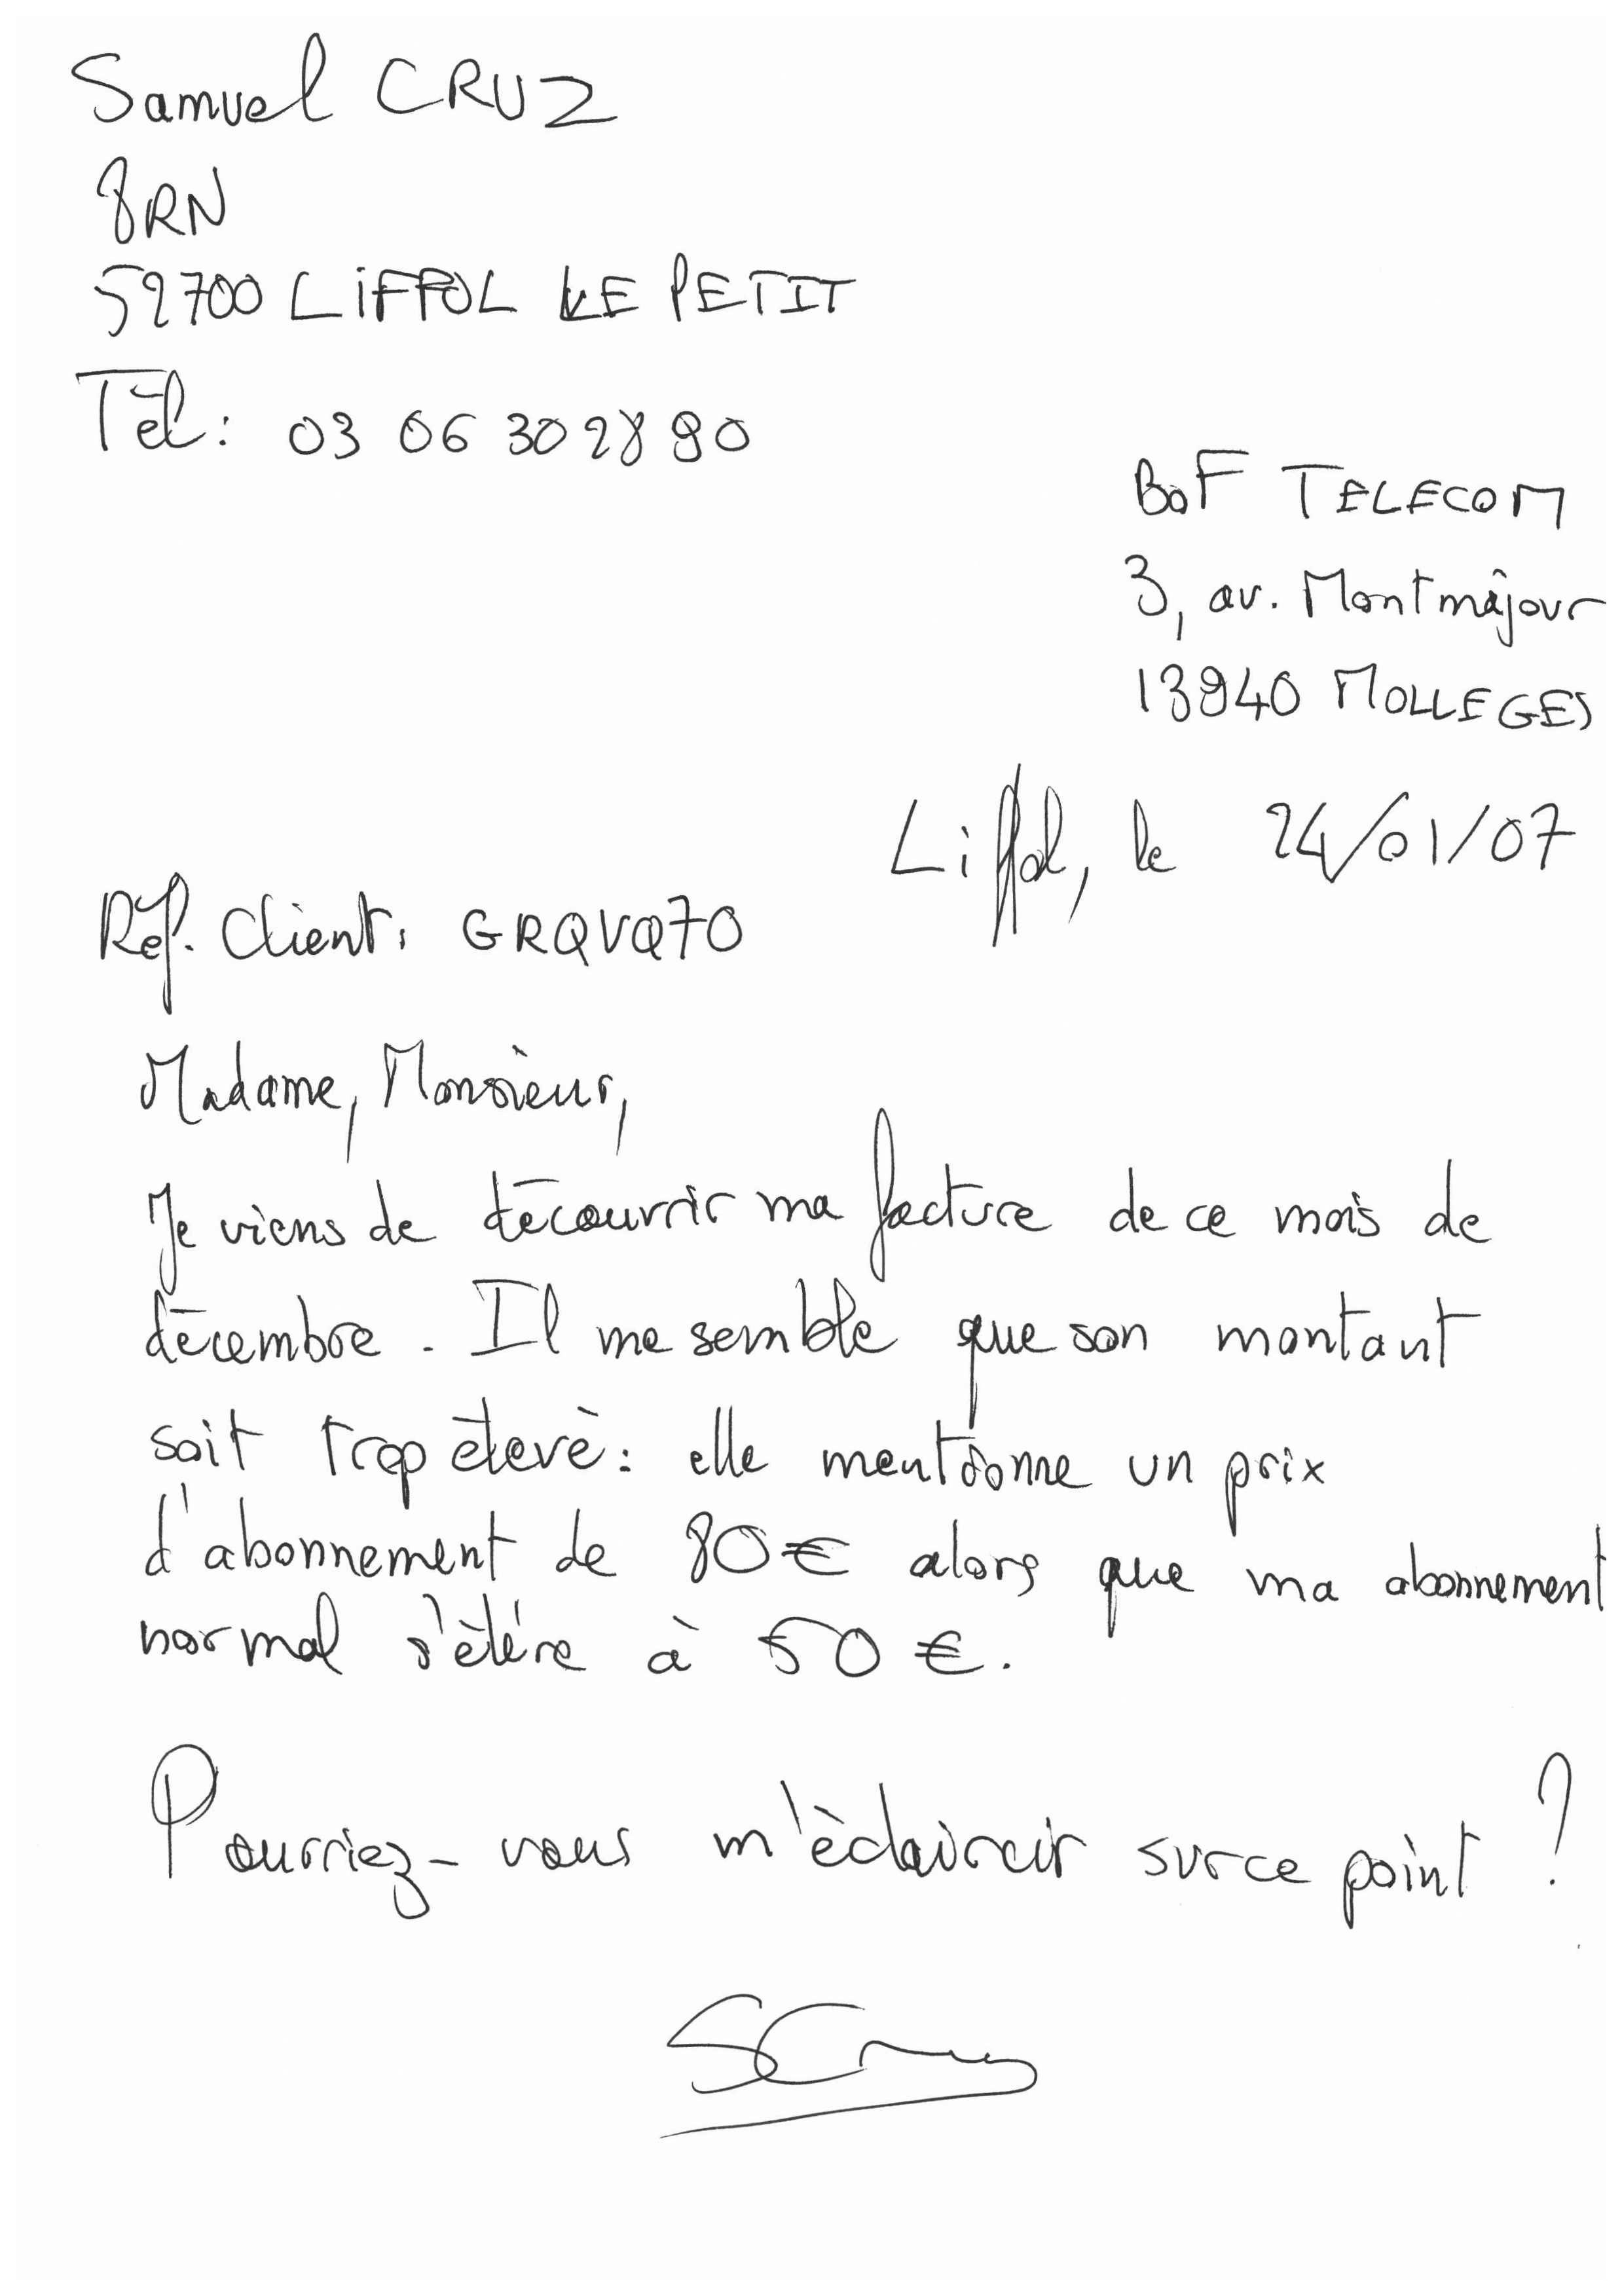 Samuel CRUZ
8RN
52700 LIFFOL LE PETIT
Tél: 03 06 30 28 90
BoF TELECOM
3, av. Montmâjour
13940 MOLLEGES
Liffol, le 24/01/07
Réf. Client: GRQVQ70
Madame, Monsieur,
Je viens de découvrir ma facture de ce mois de
décembre. Il me semble que son montant
soit trop élevé: elle mentionne un prix
d'abonnement de 80€ alors que ma abonnement
normal s'élève à 50€.
Pourriez-vous m'éclaircir sur ce point ?
SCruz